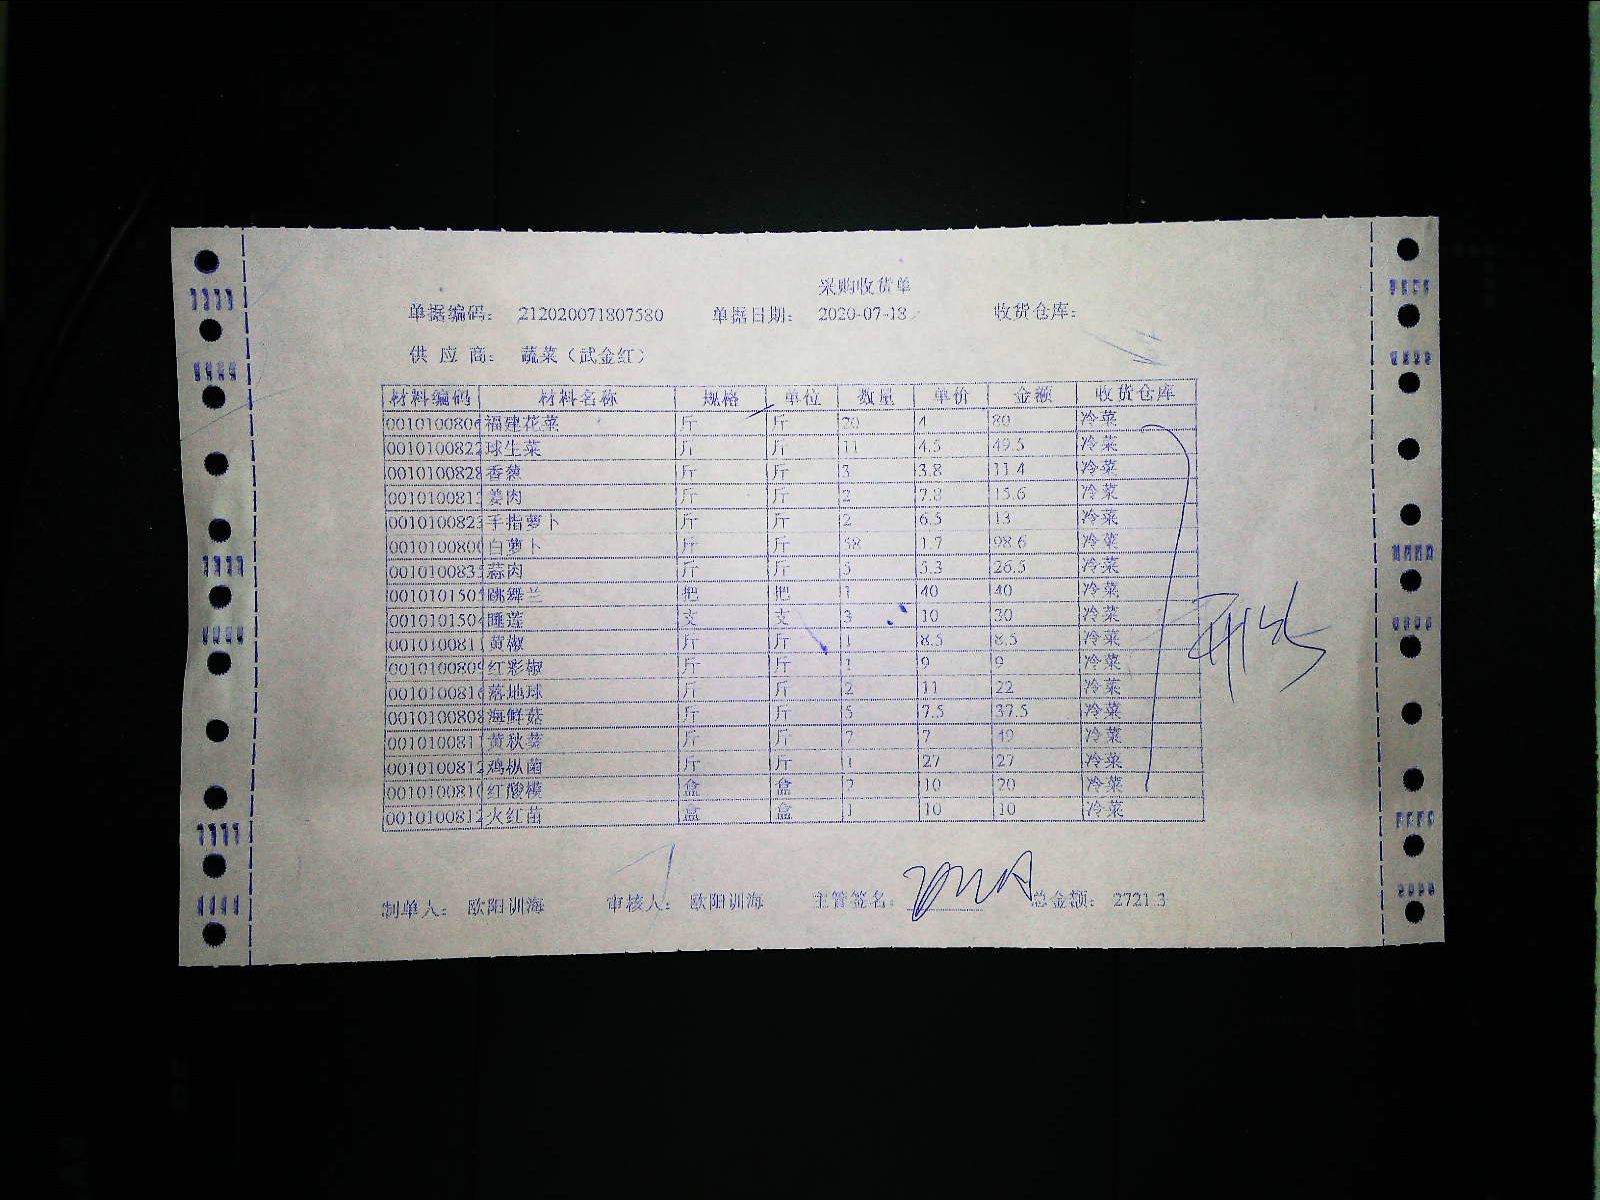 采购收货单
单据编码： 212020071807580 单据日期： 2020-07-18 收货仓库：
供 应 商： 蔬菜（武金红）
材料编码 材料名称 规格 单位 数量 单价 金额 收货仓库
0010100806 福建花菜 斤 斤 20 4 80 冷菜
0010100822 球生菜 斤 斤 11 4.5 49.5 冷菜
0010100828 香葱 斤 斤 3 3.8 11.4 冷菜
001010081 姜肉 斤 斤 2 7.8 15.6 冷菜
001010082 手指萝卜 斤 斤 2 6.5 13 冷菜
001010080 白萝卜 斤 斤 58 1.7 98.6 冷菜
001010083 蒜肉 斤 斤 5 5.3 26.5 冷菜
001010150 跳舞兰 把 把 1 40 40 冷菜
001010150 睡莲 支 支 3 10 30 冷菜
001010081 黄椒 斤 斤 1 8.5 8.5 冷菜
001010080 红彩椒 斤 斤 1 9 9 冷菜
0010100816 落地球 斤 斤 2 11 22 冷菜
0010100808 海鲜菇 斤 斤 5 7.5 37.5 冷菜
001010081 黄秋葵 斤 斤 7 7 49 冷菜
0010100812 鸡枞菌 斤 斤 1 27 27 冷菜
001010081 红酸模 盒 盒 2 10 20 冷菜
0010100812 火红苗 盒 盒 1 10 10 冷菜
制单人： 欧阳训海 审核人： 欧阳训海 主管签名： 总金额： 2721.3